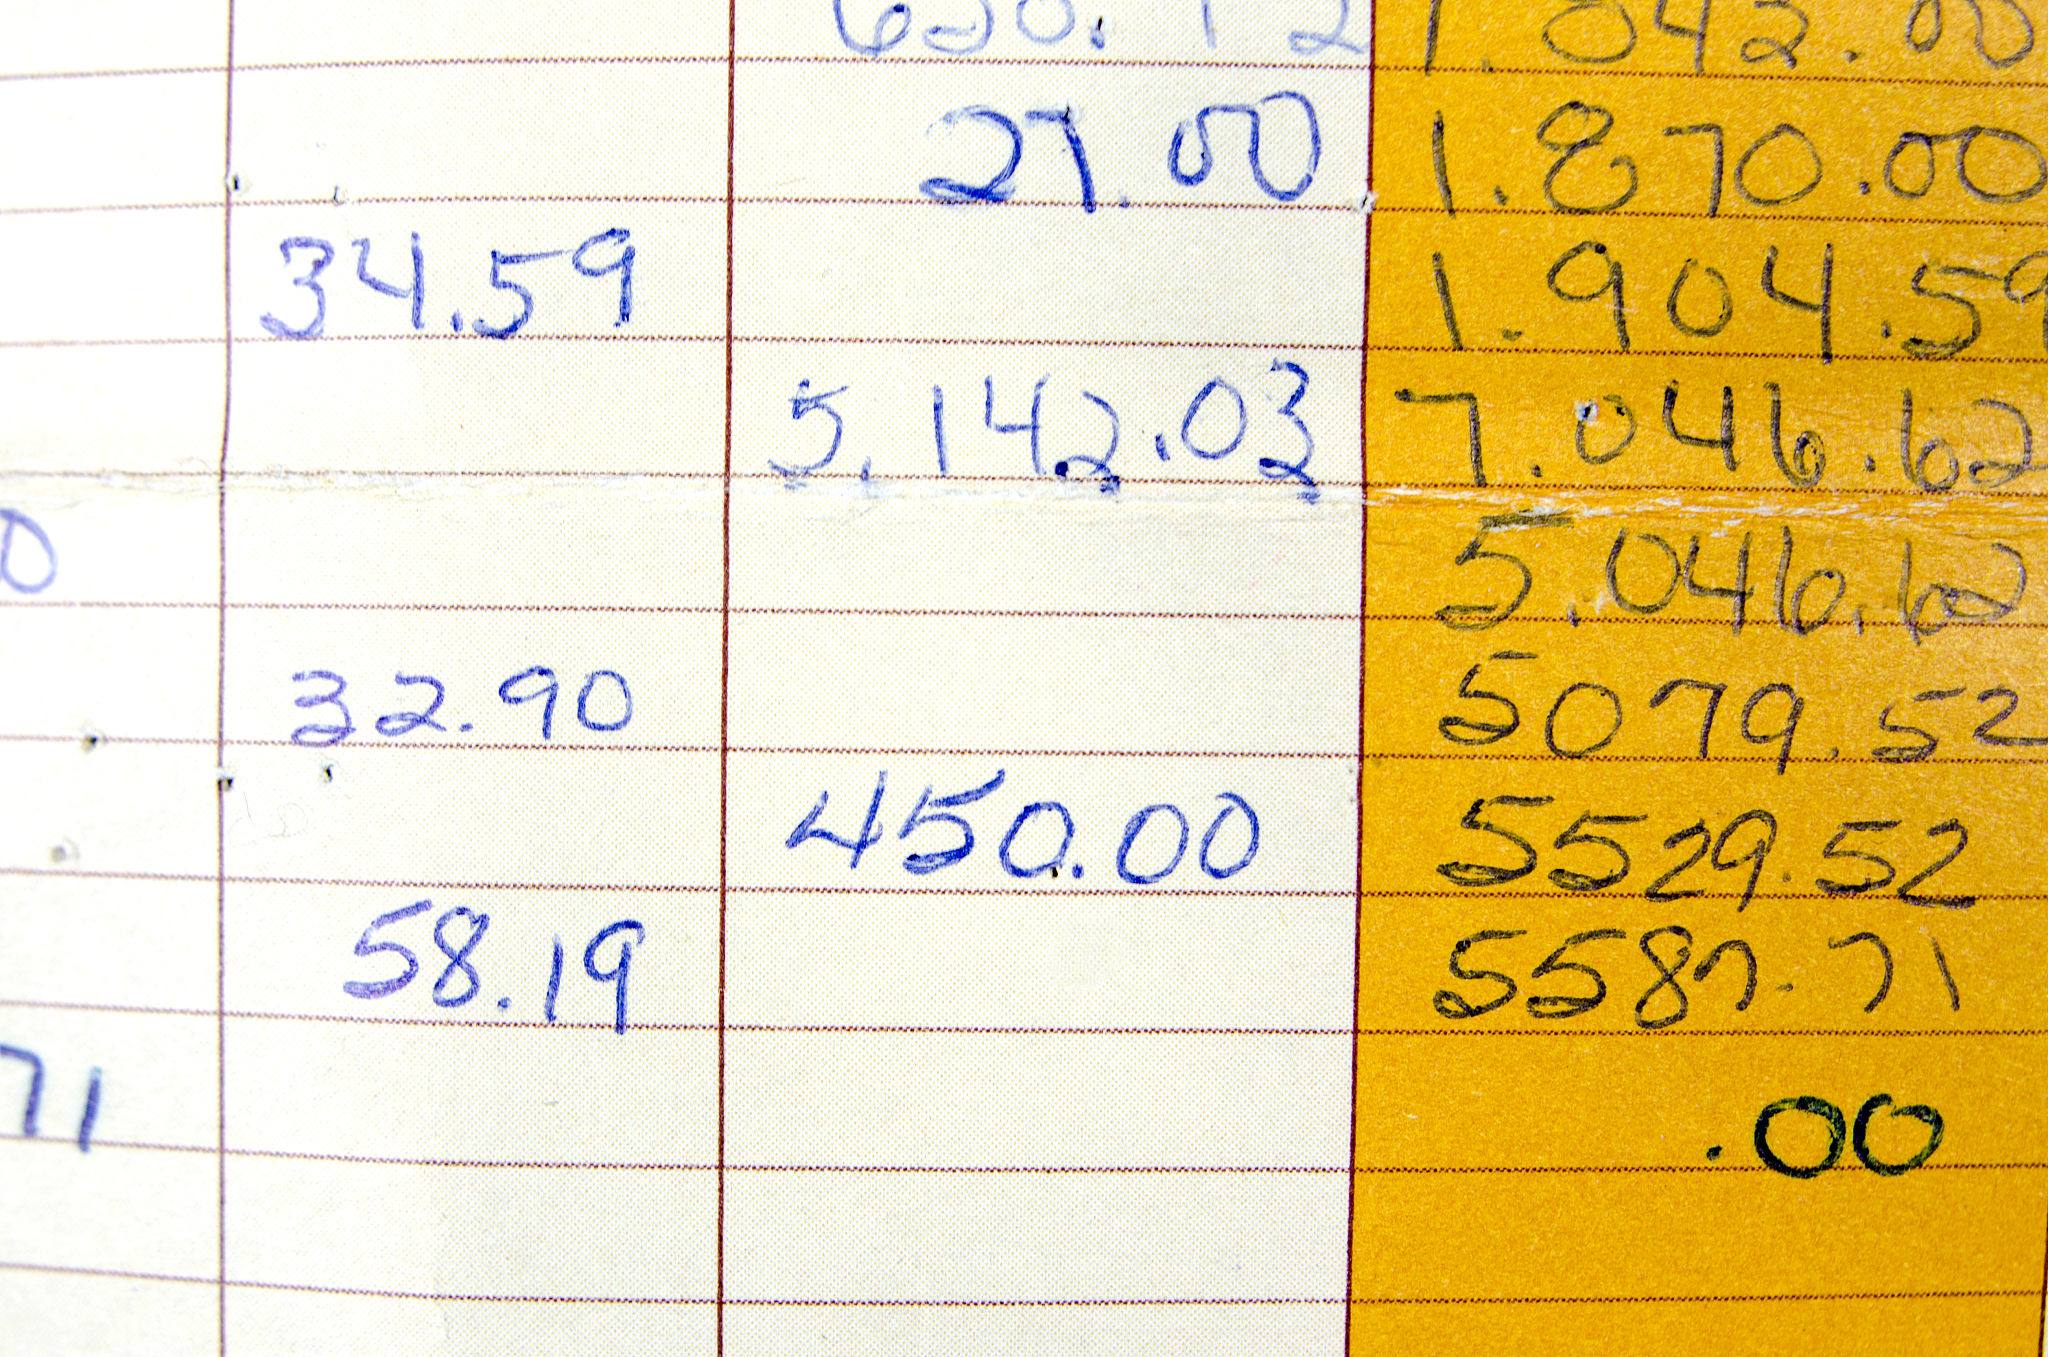 27.00 1.870.00
34.59 1.904.59
5.142.03 7.046.62
0 5.046.62
32.90 5079.52
450.00 5529.52
58.19 5587.71
71 .00